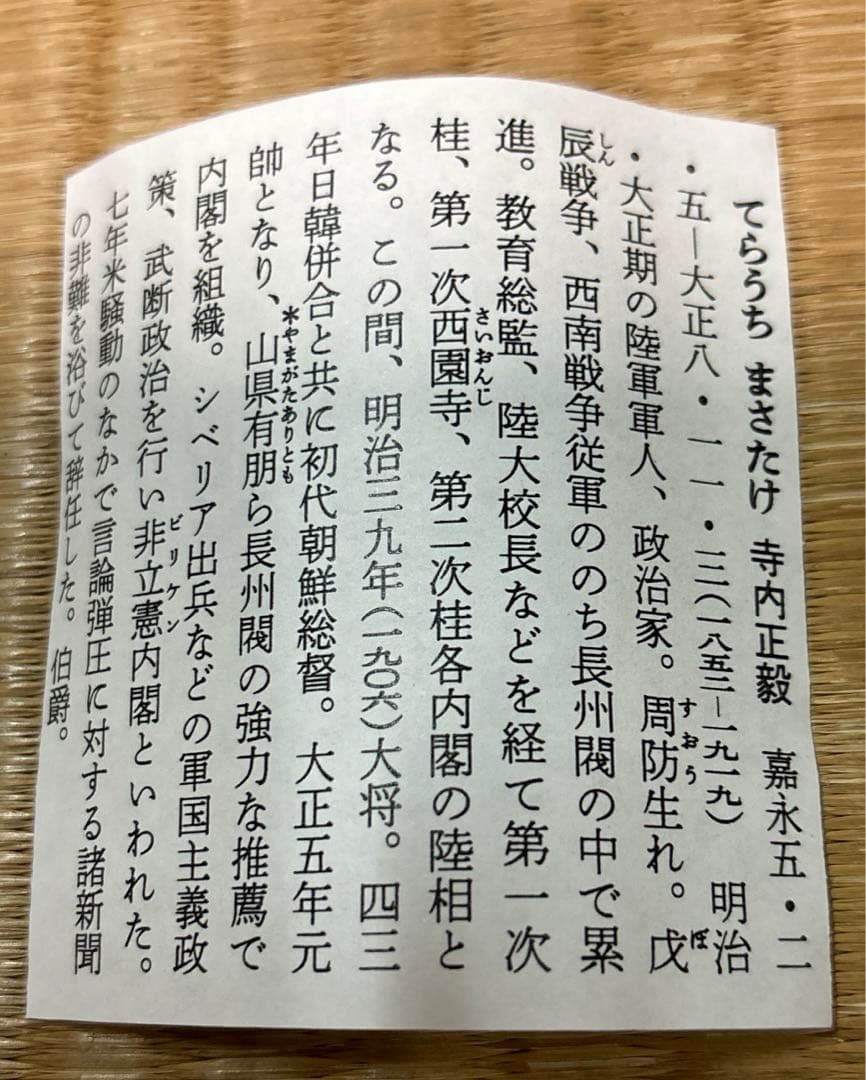 てらうち まさたけ 寺内正毅 嘉永五・二
・五―大正八・一一・三(一八五二―一九一九) 明治
・大正期の陸軍軍人、政治家。周防生れ。戊
すおう
ぼ
辰戦争、西南戦争従軍ののち長州閥の中で累
しん
進。教育総監、陸大校長などを経て第一次
桂、第一次西園寺、第二次桂各内閣の陸相と
さいおんじ
なる。この間、明治三九年(一九〇六)大将。四三
年日韓併合と共に初代朝鮮総督。大正五年元
帥となり、山県有朋ら長州閥の強力な推薦で
*やまがたありとも
内閣を組織。シベリア出兵などの軍国主義政
策、武断政治を行い非立憲内閣といわれた。
ビリケン
七年米騒動のなかで言論弾圧に対する諸新聞
の非難を浴びて辞任した。伯爵。